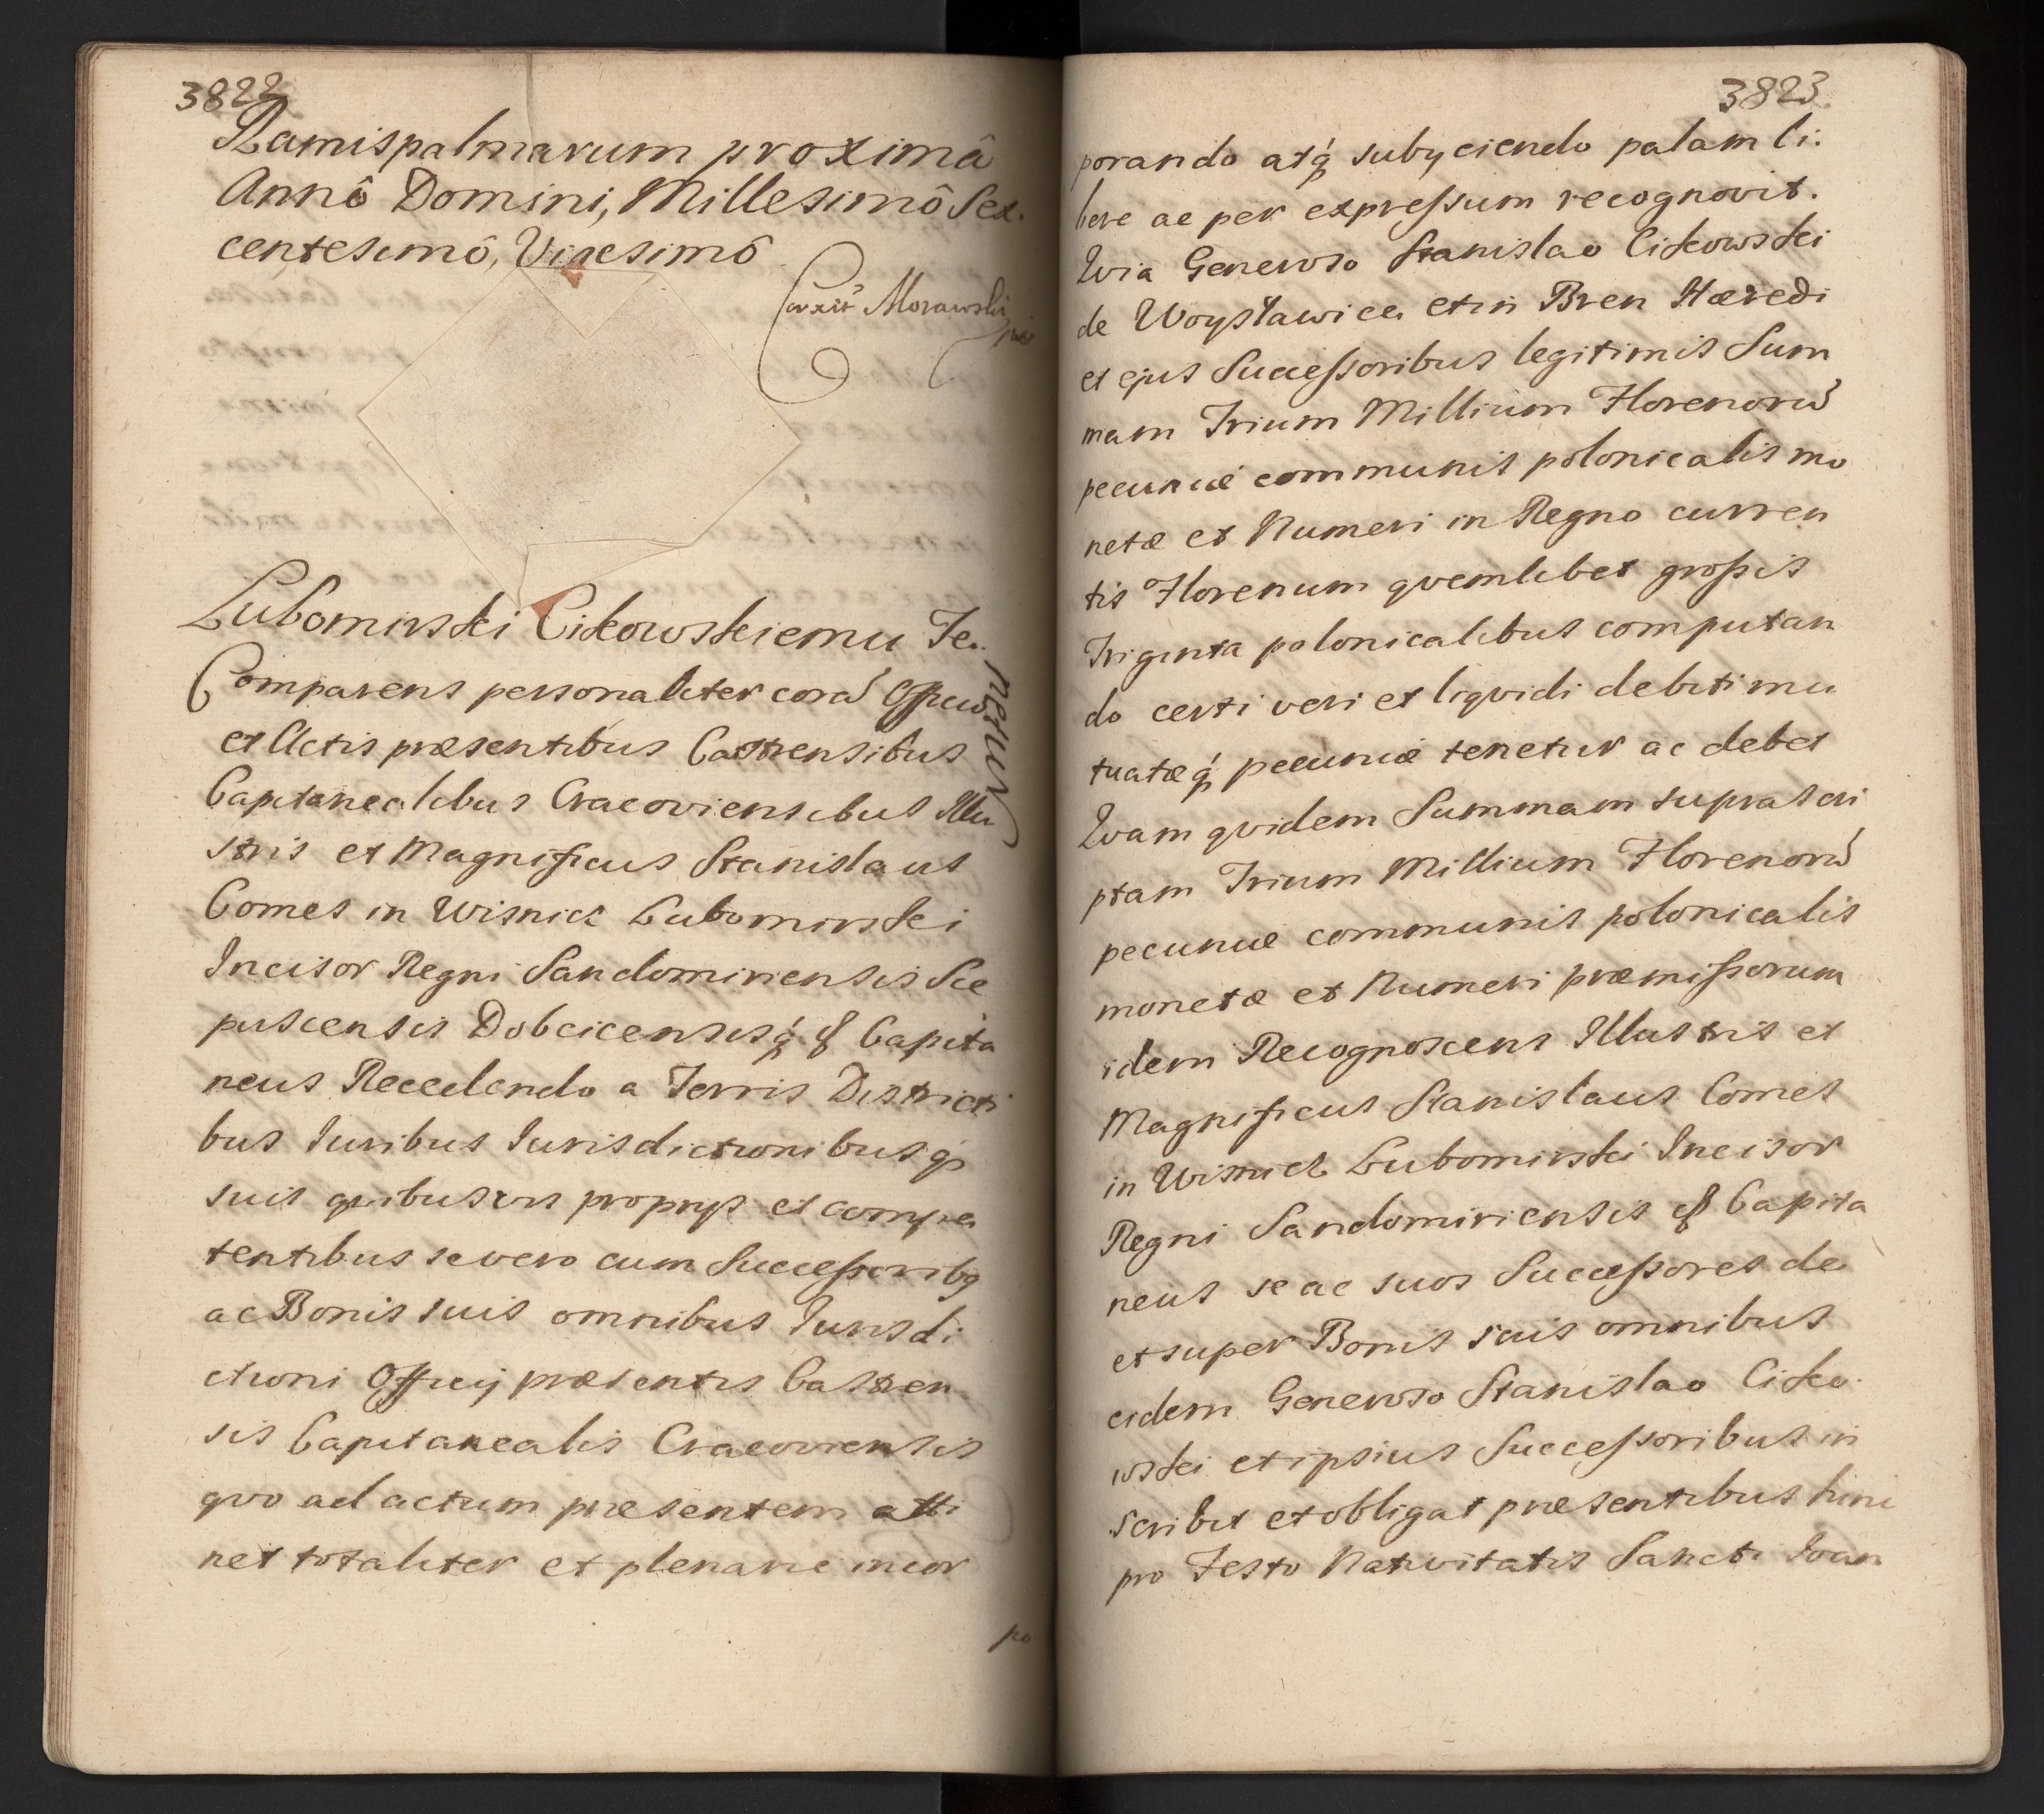 3822
Ramispalmarum proximâ
Annô Domini, Millesimô Sex.
centesimô, Vicesimô
Corxit Morawski
mp
Lubomirski Cikowskiemu Te.
netur
Comparens personaliter corā Officio
et Actis præsentibus Castrensibus
Capitanealibus Cracoviensibus Illu
stris et Magnificus Stanislaus
Comes in Wisnicz Lubomirski
Incisor Regni Sandomiriensis Sce
pusiensis Dobcicensisq́ ꝸ Capita
neus Recedendo a Terris Districti
bus Iuribus Iurisdictionibusq́
suis quibusvis proprys et compe
tentibus se vero cum Successoribꝗ
ac Bonis suis omnibus Iurisdi
ctioni Officij præsentis Castren
sis Capitanealis Cracoviensis
qvo ad actum præsentem atti
net totaliter et plenarie incor
po
3823.
porando atq́ subyciendo palam li:
bere ac per expressum recognovit.
Qvia Generoso Stanislao Cikowski
de Woysławice et in Bren Hæredi
et ejus Successoribus legitimis Sum
mam Trium Millium Florenorū
pecuniæ communis polonicalis mo
netæ et Numeri in Regno curren
tis Florenum qvemlibet grossis
Triginta polonicalibus computan
do certi veri et liqvidi debiti mu
tuatæq́ pecuniæ tenetur ac debet
Qvam qvidem Summam suprascri
ptam Trium Millium Florenorū
pecuniæ communis polonicalis
monetæ et Numeri præmissorum
idem Recognoscens Illustris et
Magnificus Stanislaus Comes
in Wisnicz Lubomirski Incisor
Regni Sandomiriensis ꝸ Capita
neus se ac suos Successores de
et super Bonis suis omnibus
eidem Generoso Stanislao Ciko.
wski et ipsius Successoribus in
scribit et obligat præsentibus hinc
pro Festo Nativitatis Sancti Ioan